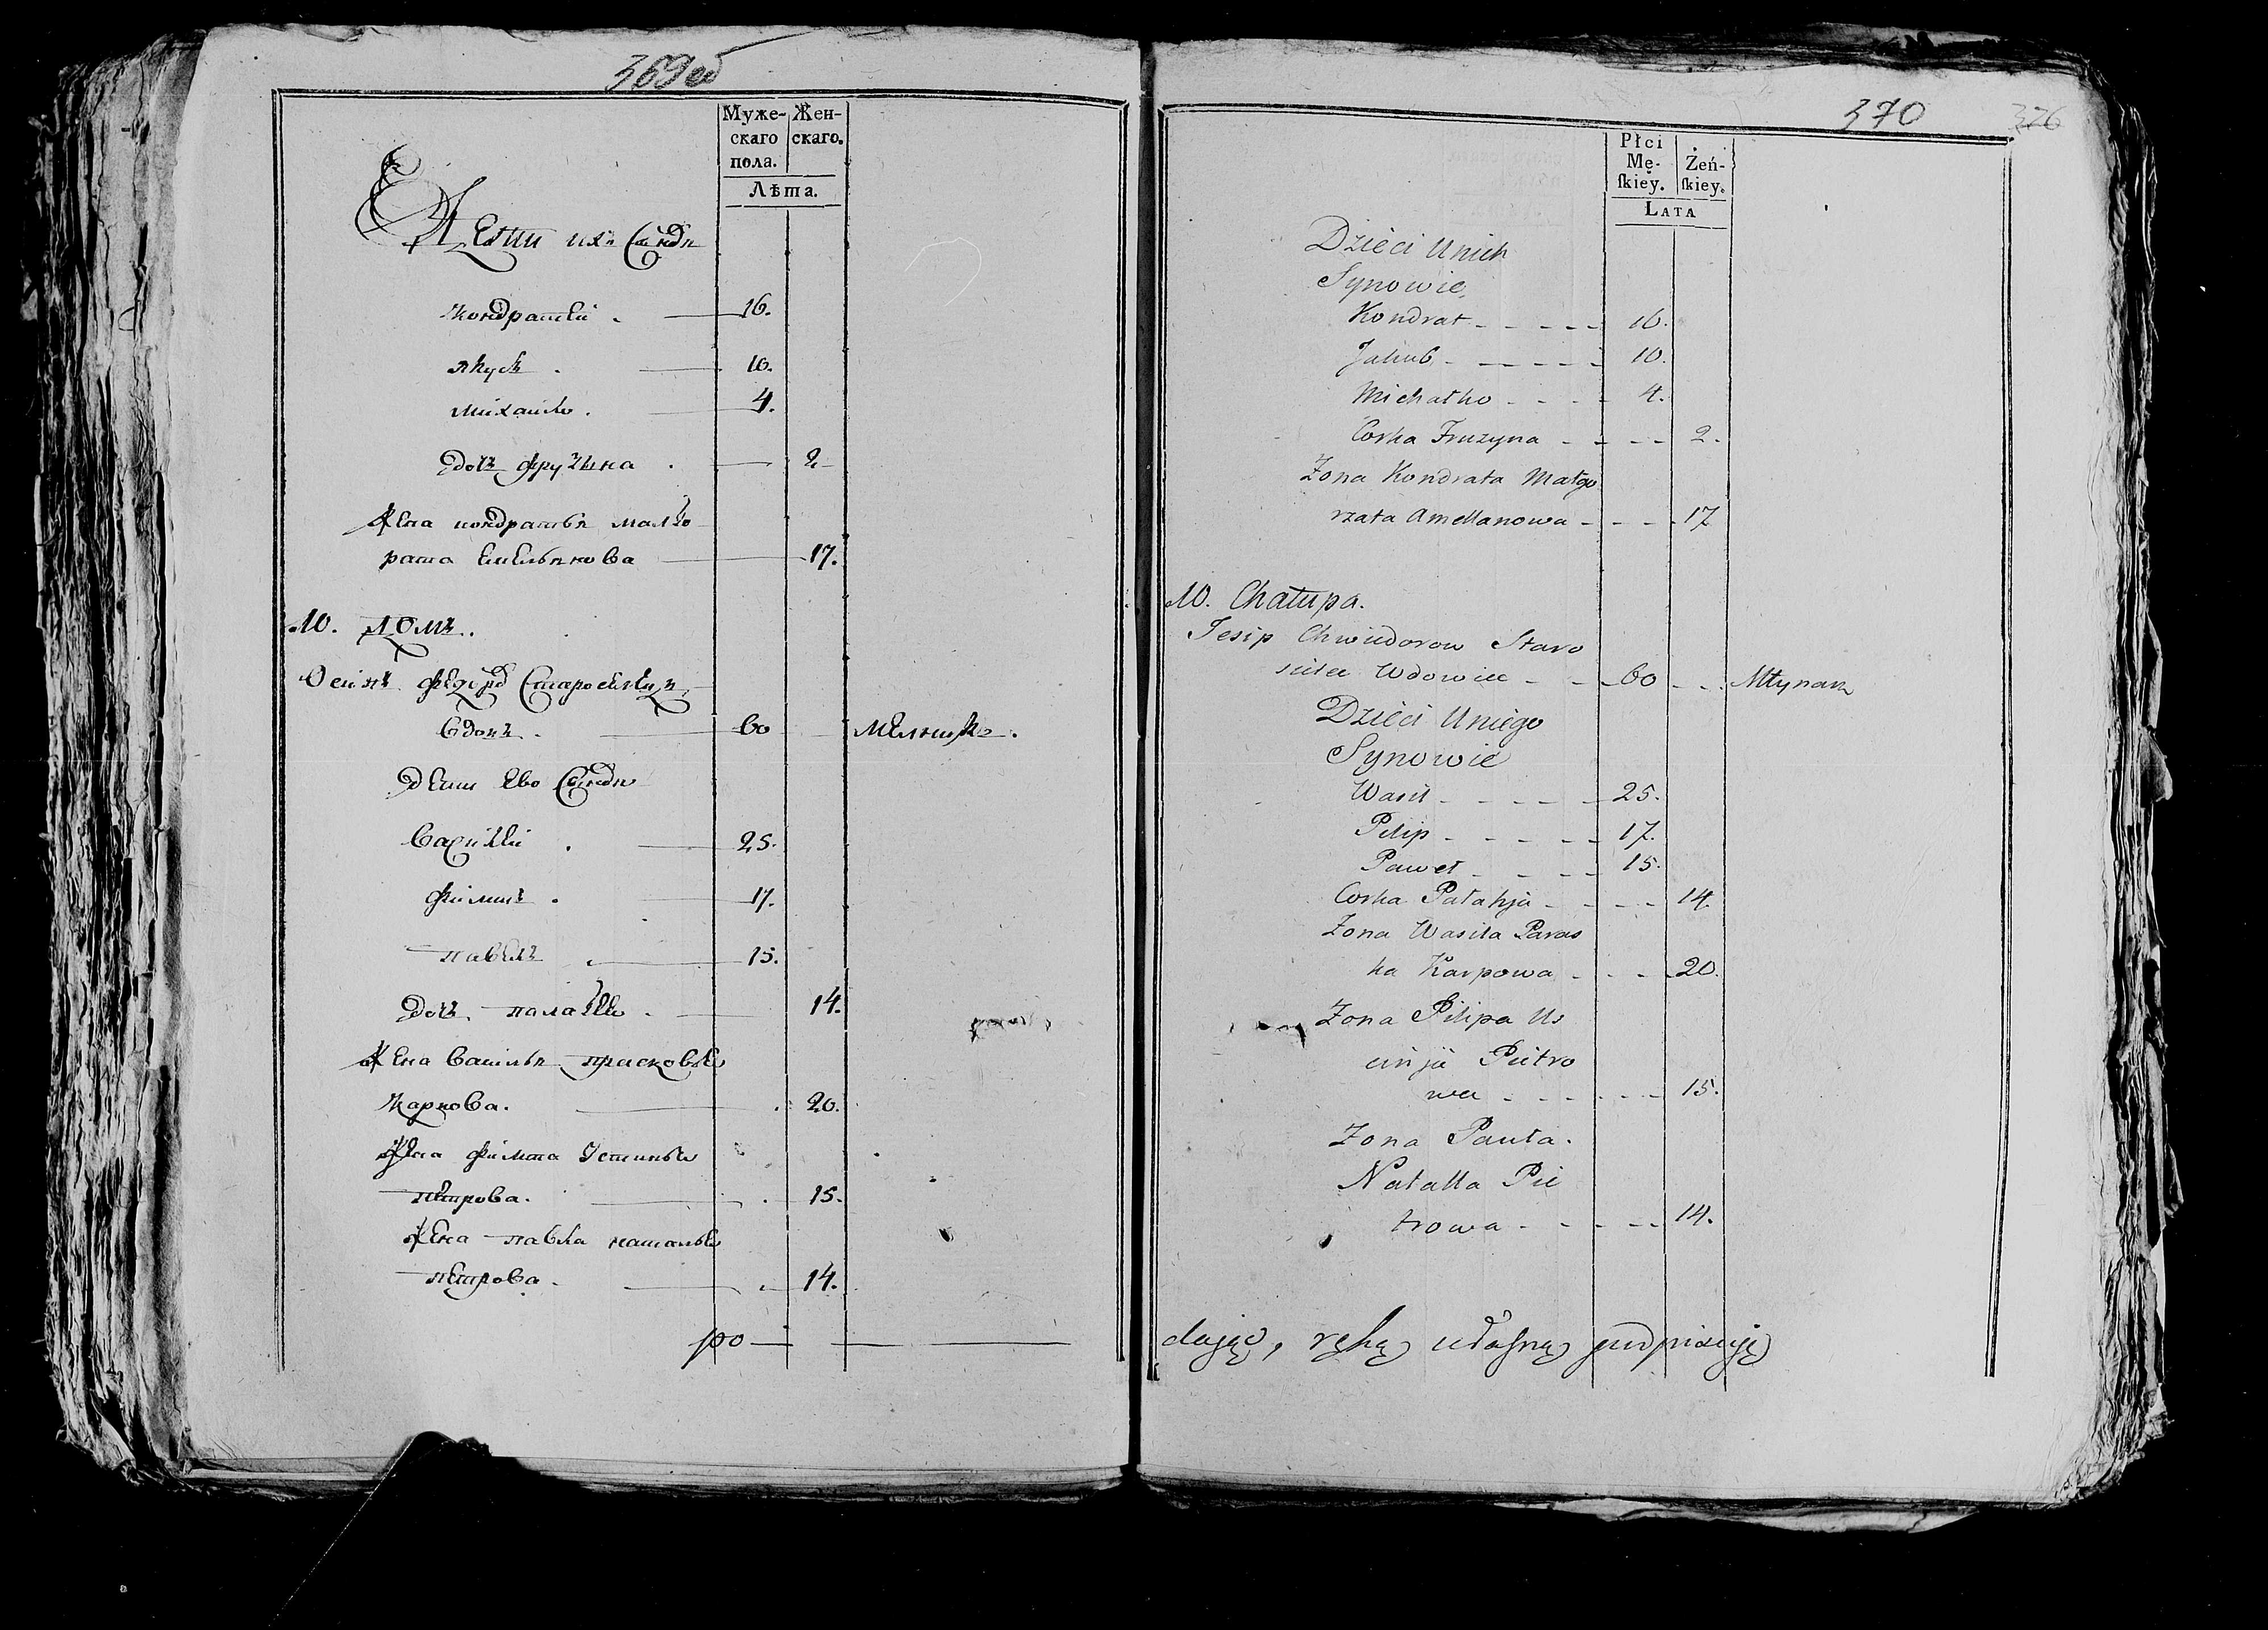 369 об
Муже-
скаго
пола.
Жен-
скаго.
Лѣта.
Дети ихъ Сыновя
Кондратей . 16.
Якубъ . 10.
Михайло . 4.
дочь Фружына . 2
Жена Кондратья Малго
рата Емельянова 17.
10. Домъ.
Осипъ Федоровъ Старосел
Вдовъ . 60 Мельникъ.
Дети Ево Сыновя
Василей . 25.
Филипъ . 17.
Павелъ . 15.
дочь Палагея . 14.
Жена Василья Прасковья
Карпова. 20.
Жена Филипа Устинья
Петрова. 15.
Жена Павла Наталья
Петрова. 14.
ро
370 376
Płci
Mę-
ſkiey.
Żeń-
ſkiey.
LATA
Dzieci Unich
Synowie
Kondrat 16.
Jakub 10.
Michałko 4.
Corka Fruzyna 2.
Zona Kondrata Małgo
rzata Amellanowa 17
10. Chałupa.
Jesip Chwiedorow Staro
Wdowiec 60 Młynarz
Dzieci Uniego
Synowie
Wasil 25.
Pilip 17.
Paweł 15.
Corka Pałahja 14.
Zona Wasila Paras
ka Karpowa 20.
Zona Pilipa Us
cinja Pietro
wa 15.
Zona Pauła.
Natalla Pie
trowa 14.
dając, ręką własną podpisuję